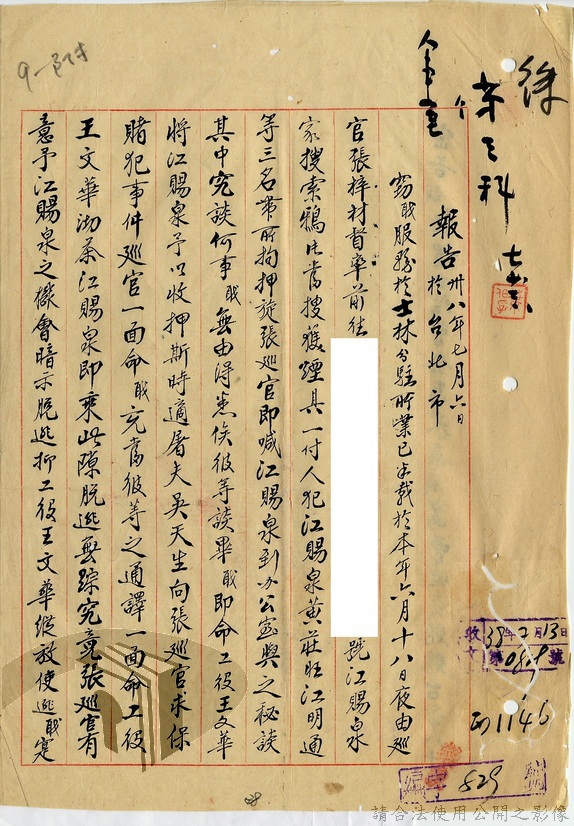 徐
第三科
報告 卅八年七月六日
於台北市
竊職服務於士林分駐所業已半載於本年六月十八日夜由巡
官張梓材督率前往
號江賜泉
家搜索鴉片當搜獲煙具一付人犯江賜泉黃莊旺江明通
等三名帶所拘押旋張巡官即喊江賜泉到办公室與之秘談
其中究談何事職無由得悉俟彼等談畢職即命工役王文華
將江賜泉予以收押斯時適屠夫吳天生向張巡官求保
賭犯事件巡官一面命職充當彼等之通譯一面命工役
王文華沏茶江賜泉即乘此隙脫逃無踪究竟張巡官有
意予江賜泉之機會暗示脫逃抑工役王文華縱放使逃職寔
收文
38年7月13日
第0818號
1146
字829號
請合法使用公開之影像